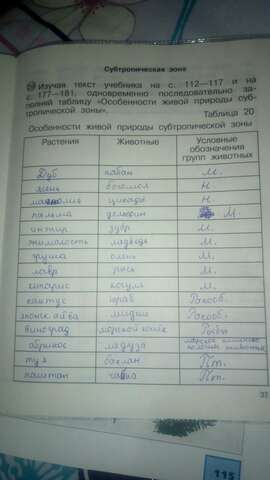 Субтропическая зона
Изучая текст учебника на с. 112—117 и на
с. 177—181, одновременно последовательно за-
полняй таблицу «Особенности живой природы суб-
тропической зоны».
Таблица 20
Особенности живой природы субтропической зоны
Растения Животные Условные обозначения групп животных
Дуб кабан М.
ясень богомол Н.
магнолия цикады Н.
пальма дельфин М.
инжир зубр М.
жимолость медведь М.
груша олень М.
лавр рысь М.
кипарис косуля М.
кактус краб Ракооб.
айва мидии Ракооб.
виноград морской Рыбы
абрикос медуза
туя баклан Пт.
каштан чайка Пт.
37
115